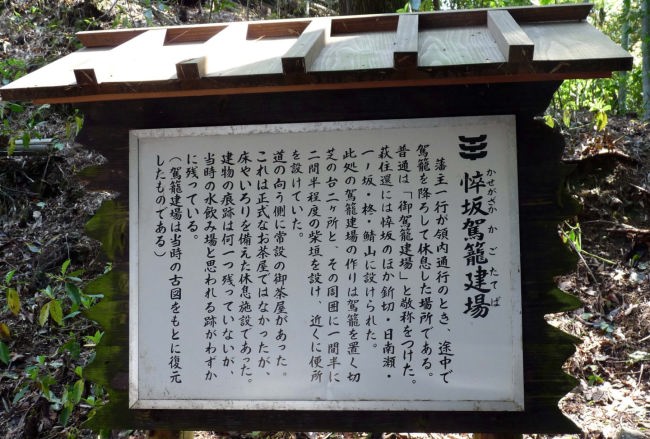 かせがざか か ご たてば
悴坂駕籠建場
藩主一行が領内通行のとき、途中で
駕籠を降ろして休息した場所である。
普通は「御駕籠建場」と敬称をつけた。
萩往還には悴坂のほか釿切・日南瀬・
一ノ坂・柊・鯖山に設けられた。
此処の駕籠建場の作りは駕籠を置く切
芝の台二ヶ所と、その周囲に一間半に
二間半程度の柴垣を設け、近くに便所
を設けていた。
道の向う側に常設の御茶屋があった。
これは正式なお茶屋ではなかったが、
床やいろりを備えた休息施設であった。
建物の痕跡は何一つ残っていないが、
当時の水飲み場と思われる跡がわずか
に残っている。
(駕籠建場は当時の古図をもとに復元
したものである)